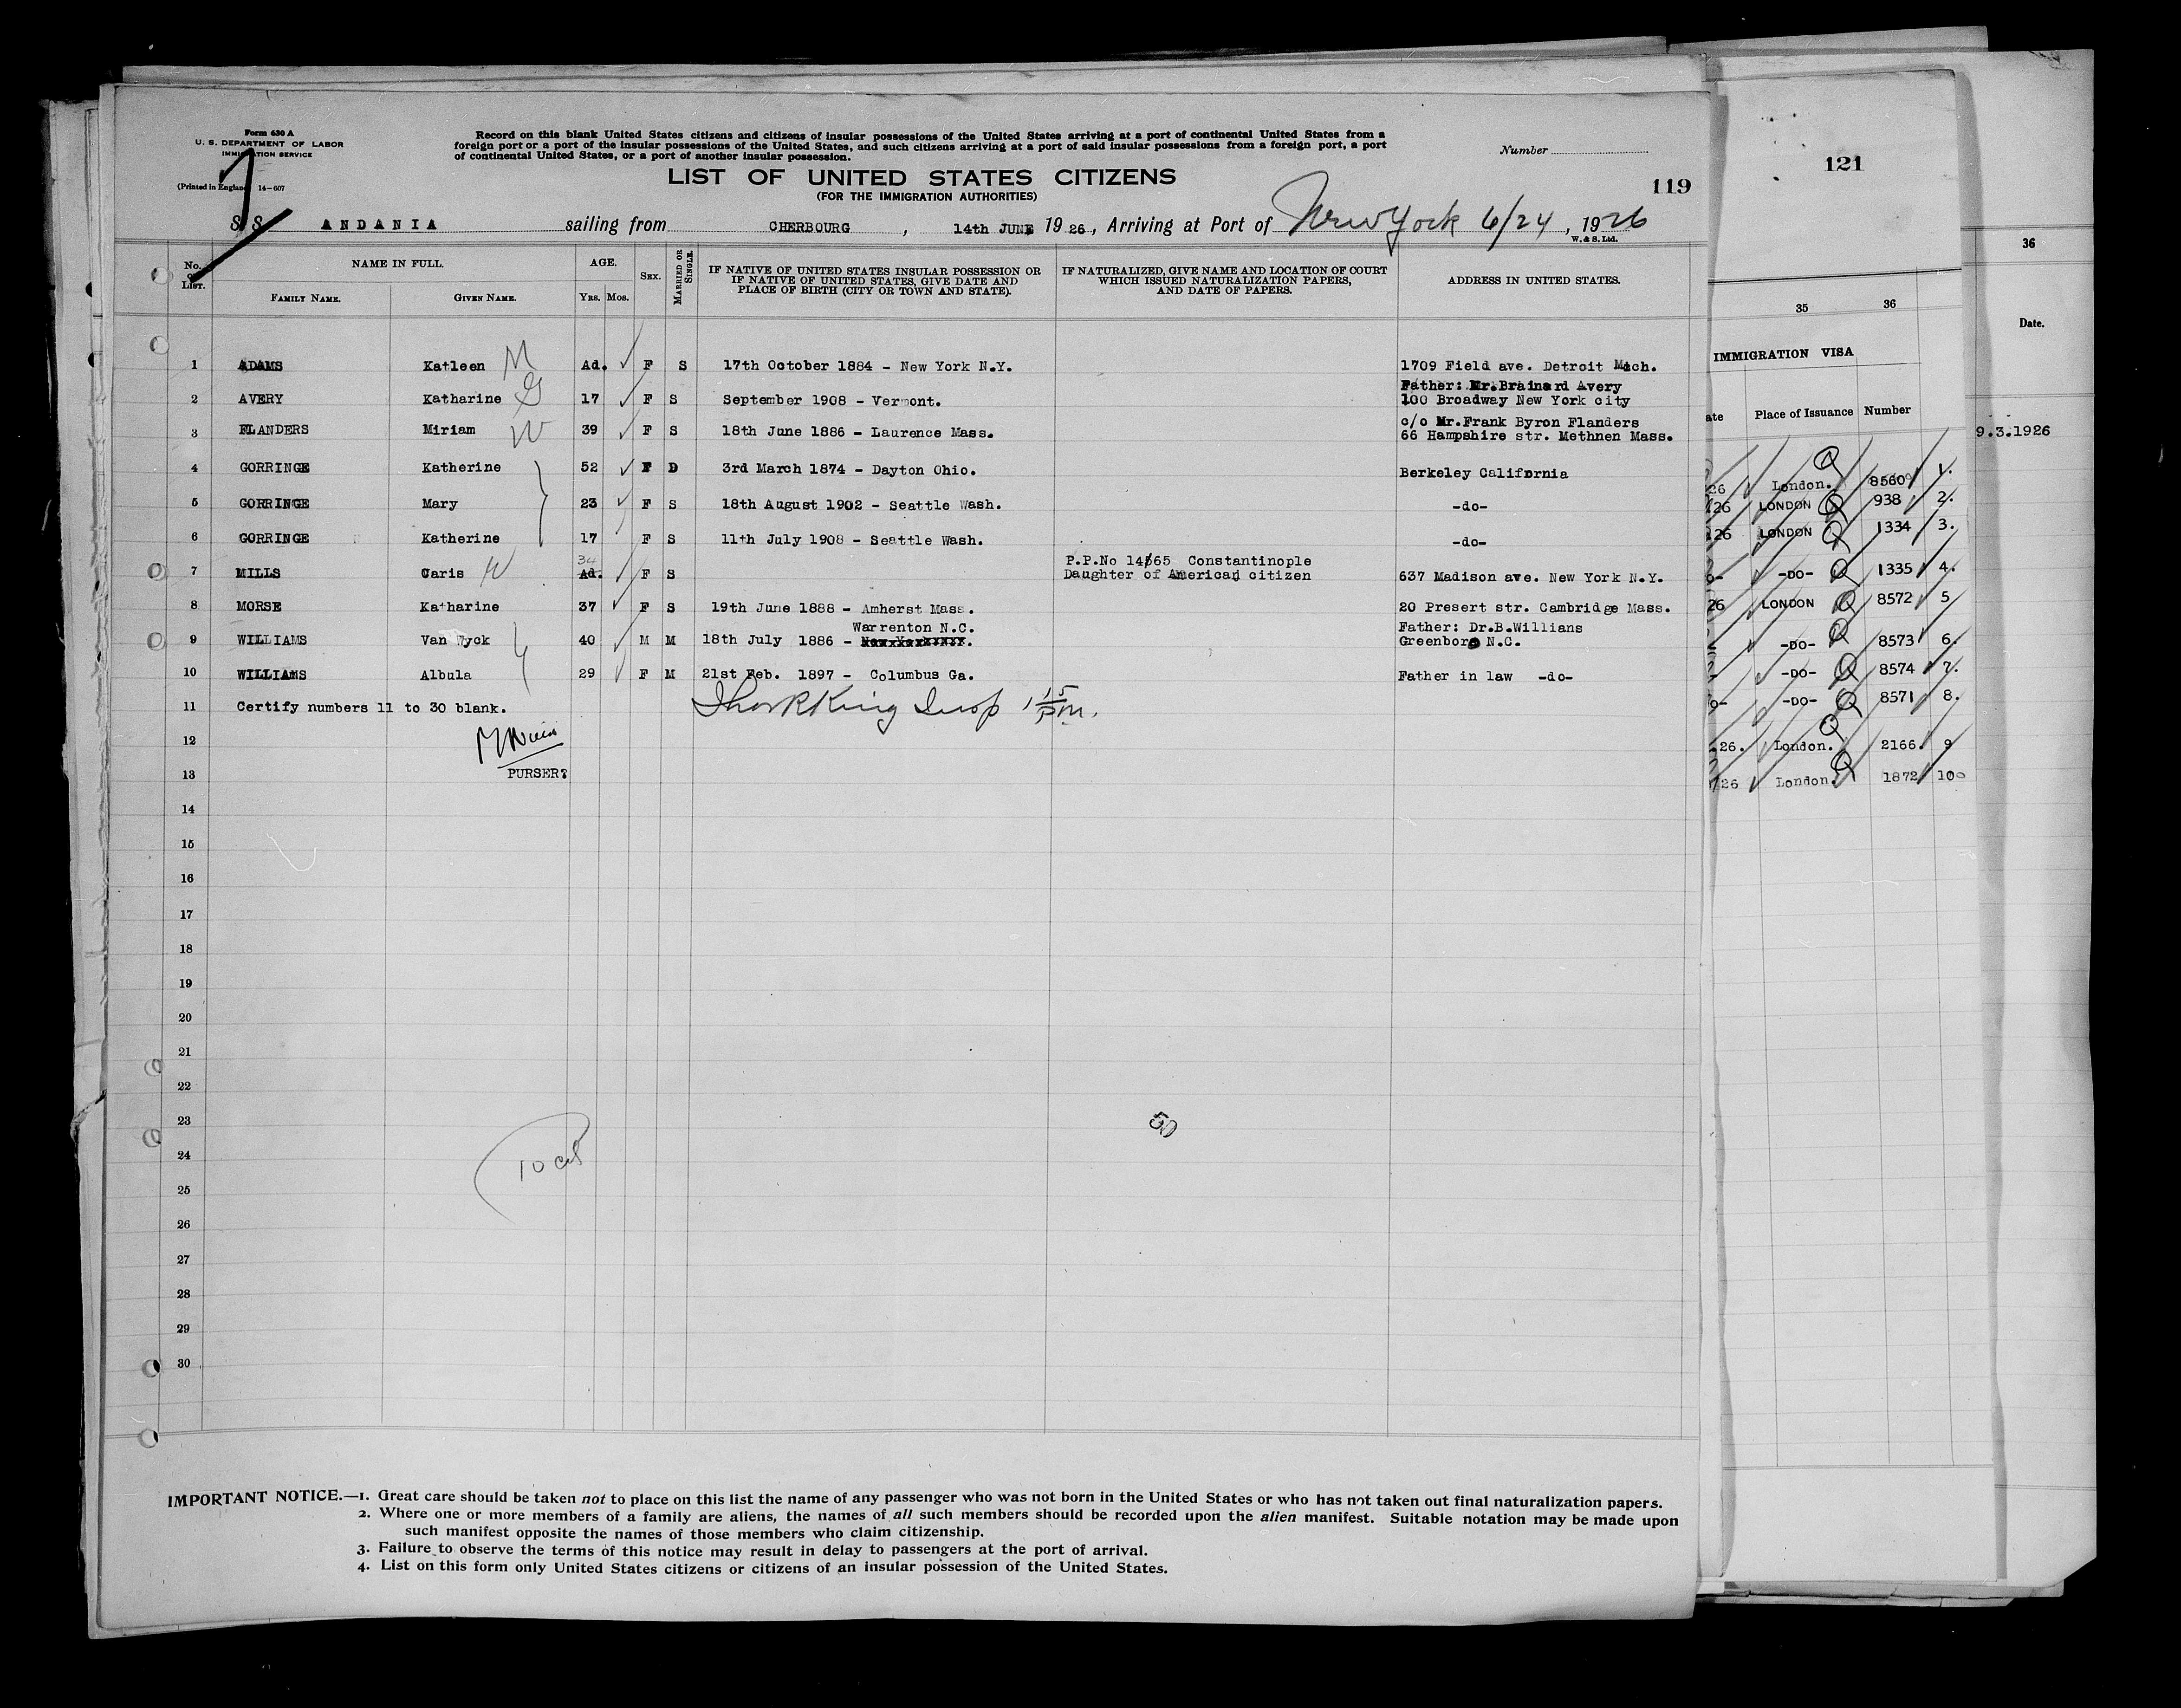 Form 630 A
U. S. DEPARTMENT OF LABOR
IMMIGRATION SERVICE
(Printed in England) 14-607
Record on this blank United States citizens and citizens of insular possessions of the United States arriving at a port of continental United States from a
foreign port or a port of the insular possessions of the United States, and such citizens arriving at a port of said insular possessions from a foreign port, a port
of continental United States, or a port of another insular possession.
Number
LIST OF UNITED STATES CITIZENS
(FOR THE IMMIGRATION AUTHORITIES)
119
S S ANDANIA sailing from CHERBOURG, 14th JUNE 1926, Arriving at Port of New York 6/24, 1926
W. & S. Ltd.
No. on List. NAME IN FULL. AGE. Sex. Married or Single. IF NATIVE OF UNITED STATES INSULAR POSSESSION OR IF NATIVE OF UNITED STATES, GIVE DATE AND PLACE OF BIRTH (CITY OR TOWN AND STATE). IF NATURALIZED, GIVE NAME AND LOCATION OF COURT WHICH ISSUED NATURALIZATION PAPERS, AND DATE OF PAPERS. ADDRESS IN UNITED STATES.
Family Name. Given Name. Yrs. Mos.
1 ADAMS Katleen M Ad. F S 17th October 1884 - New York N.Y. 1709 Field ave. Detroit Mich.
Father: Mr.Brainard Avery
2 AVERY Katharine G 17 F S September 1908 - Vermont. 100 Broadway New York city
c/o Mr.Frank Byron Flanders
3 FLANDERS Miriam W 39 F S 18th June 1886 - Laurence Mass. 66 Hampshire str. Methnen Mass.
4 GORRINGE Katherine 52 F D 3rd March 1874 - Dayton Ohio. Berkeley California
5 GORRINGE Mary 23 F S 18th August 1902 - Seattle Wash. -do-
6 GORRINGE Katherine 17 F S 11th July 1908 - Seattle Wash. -do-
34 P.P.No 14565 Constantinople
7 MILLS Caris W Ad. F S Daughter of American citizen 637 Madison ave. New York N.Y.
8 MORSE Katharine 37 F S 19th June 1888 - Amherst Mass. 20 Presert str. Cambridge Mass.
Warrenton N.C. Father: Dr.B.Willians
9 WILLIAMS Van Wyck 40 M M 18th July 1886 - Greenboro N.C.
10 WILLIAMS Albula 29 F M 21st Feb. 1897 - Columbus Ga. Father in law -do-
11 Certify numbers 11 to 30 blank.
12
13 PURSER?
14
15
16
17
18
19
20
21
22
23
24
25
26
27
28
29
30
50
IMPORTANT NOTICE.—1. Great care should be taken not to place on this list the name of any passenger who was not born in the United States or who has not taken out final naturalization papers.
2. Where one or more members of a family are aliens, the names of all such members should be recorded upon the alien manifest. Suitable notation may be made upon
such manifest opposite the names of those members who claim citizenship.
3. Failure to observe the terms of this notice may result in delay to passengers at the port of arrival.
4. List on this form only United States citizens or citizens of an insular possession of the United States.
121
35 36
IMMIGRATION VISA
Place of Issuance Number
26 London. 8560 1.
26 LONDON 938 2.
26 LONDON 1334 3.
-DO- 1335 4.
26 LONDON 8572 5
-DO- 8573 6.
-DO- 8574 7.
-DO- 8571 8.
26. London. 2166. 9
26 London. 1872 10
36
Date.
9.3.1926